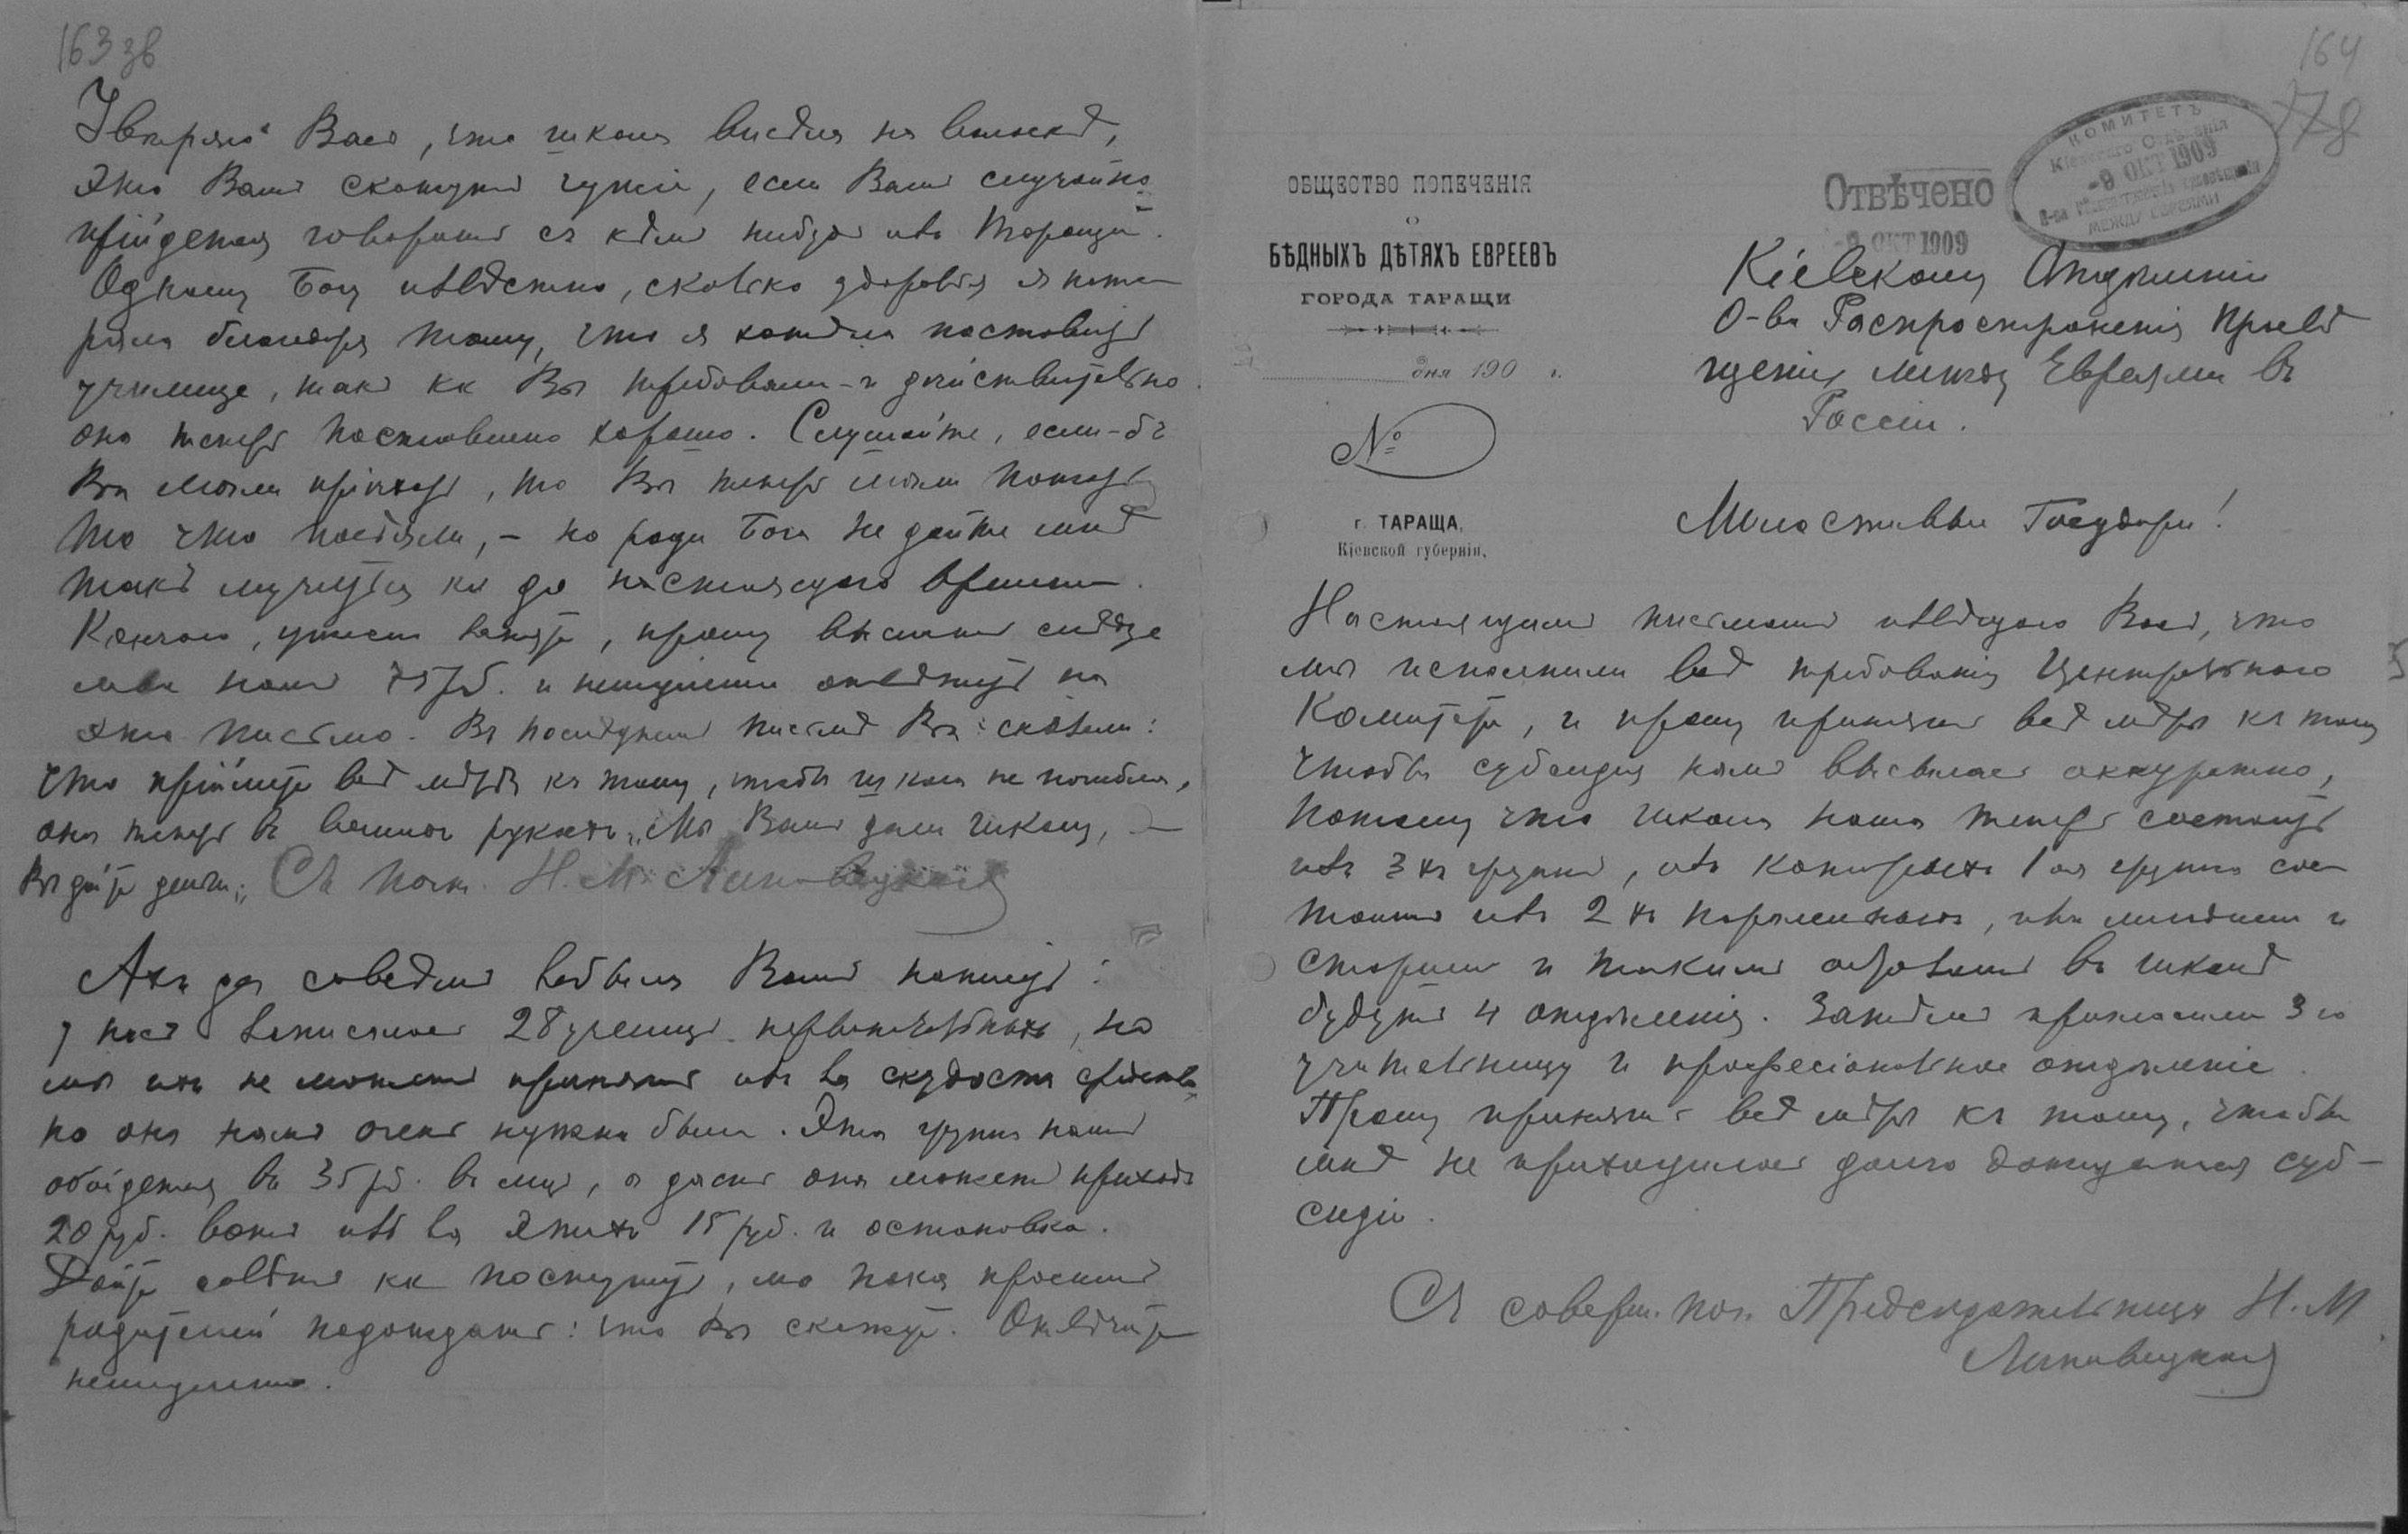 163 зв
Увѣряю Васъ, что школа висѣла на волоскѣ,
Это Вамъ скажутъ чужіе, если Вамъ случайно
прійдется говорить съ кѣмъ нибудь изъ Таращи.
Одному Богу извѣстно, сколько здоровья я поте
ряла благодаря тому, что я хотѣла поставить
училище, такъ кк Вы требовали - и дѣйствительно
оно теперь поставлено хорошо. Слушайте, если-бъ
Вы могли пріѣхать, то Вы теперь могли пожать
то что посѣяли, - но ради Бога не дайте мнѣ
такъ мучиться кк до настоящаго времени.
Кончаю, прошу выслать
намъ 75 руб. и немедленно отвѣтить на
это письмо. Въ послѣднемъ письмѣ Вы сказали:
что пріймите всѣ мѣры къ тому, чтобъ школа не погибла,
она теперь въ вашихъ рукахъ, „Мы Вамъ дали школу, —
Вы дайте деньги„ Съ поч. Н. М. Липовецкая
Ахъ да совсѣмъ забыла Вамъ написать:
у насъ записалось 28 учениц. первоначальныхъ, но
мы ихъ не можемъ принять изъ за скудости средствъ,
но она намъ очень нужна была. Эта группа намъ
обойдется въ 35 руб. въ мѣс, а дастъ она можетъ приходъ
20 руб. вотъ изъ за этихъ 15 руб. и остановка.
Дайте совѣтъ кк поступить, мы пока просимъ
родителей подождать: что Вы скажете. Отвѣчайте
немедленно.
164
778
КОМИТЕТЪ
Кіевскаго Отдѣленія
-9 ОКТ 1909
О-ва Распространенія просвѣщенія
МЕЖДУ ЕВРЕЯМИ
ОТВѢЧЕНО
-9 ОКТ 1909
ОБЩЕСТВО ПОПЕЧЕНІЯ
О
БѢДНЫХЪ ДѢТЯХЪ ЕВРЕЕВЪ
ГОРОДА ТАРАЩИ
дня 190 г.
№
г. ТАРАЩА,
Кіевской губерніи.
Кіевскому Отдѣленію
О-ва Распространенія Просвѣ
щенія между Евреями въ
Россіи.
Милостивые Государи!
Настоящимъ письмомъ извѣщаю Васъ, что
мы исполнили всѣ требованія Центральнаго
Комитета, и прошу принять всѣ мѣры къ тому
чтобы субсидія намъ высылась аккуратно,
потому что школа наша теперь состоитъ
изъ 3хъ группъ, изъ которыхъ 1ая группа сос
тоитъ изъ 2хъ параллельныхъ, изъ младшей и
старшей и такимъ образомъ въ школѣ
будутъ 4 отдѣленія. Затѣмъ пригласили 3ю
учительницу и професіональное отдѣленіе.
Прошу принять всѣ мѣры къ тому, чтобы
мнѣ не приходилось долго дожидаться суб-
сидіи.
Съ соверш. поч. Предсѣдательница Н. М
Липовецкая